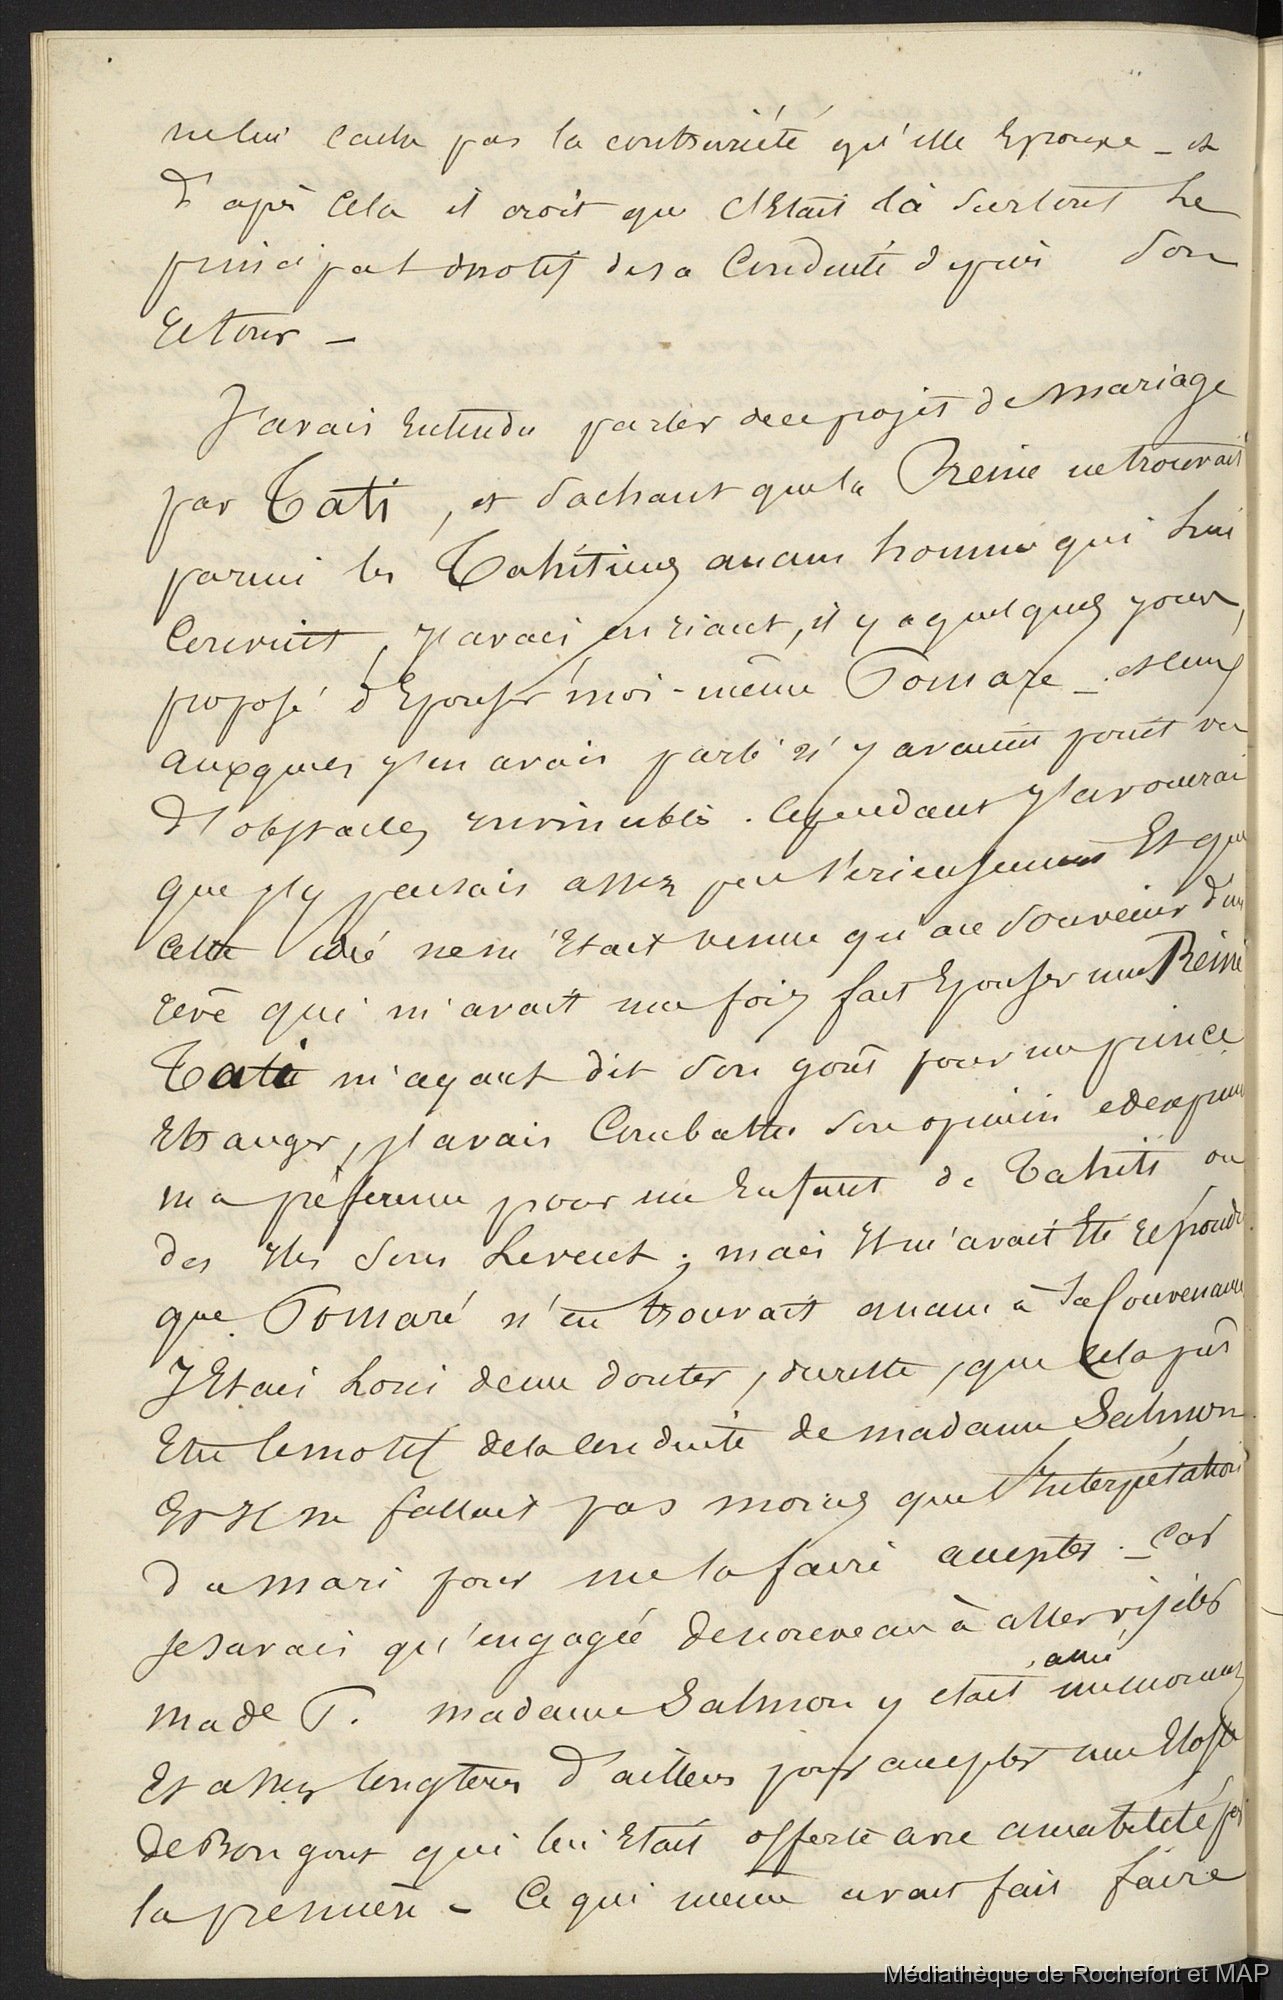 ne lui cacha pas la contrariété qu'elle Eprouve _ et
d'après Cela il croit que C'Etait là Surtout Le
principal motif de sa Conduite depuis Son
Retour _
J'avais Entendu parler de ce projet de Mariage
par Tati, et Sachant que la Reine ne trouvait
parmi les Tahitiens aucun homme qui Lui
Convint, j'avais en riant, il y a quelques jours,
proposé d'Epouser moi-même Pomaré _ . et ceux
auxquels j'en avais parlé n'y avaient point vu
d'obstacles invincibles . Cependant j'avouerai
que j'y pensais assez peu Sérieusement Et que
cette idée ne m'Etait venue qu'au Souvenir d'un
rêve qui m'avait une fois fait Epouser une Reine
Tati m'ayant dit Son goût pour un prince
Etranger, j'avais Combattu Son opinion
ma préférence pour un Enfant de Tahiti ou
des Iles Sous Levent ; mais Il m'avait Eté Répondu
que Pomaré n'en trouvait aucun à Sa Convenance
J'Etais Loin de me douter, du reste, que Cela fût
Etre le motif de la Conduite de madame Salmon
Et Il ne fallait pas moins que l'Interprétation
du mari pour me la faire accepter . _ Car
je savais qu'engagée de nouveau à aller visiter
made P. madame Salmon y était allée un moment
Et assez longtems d'ailleurs pour accepter une Etoffe
de Bon gout qui lui Etait offerte avec amabilité par
la première - Ce qui même avait fait faire
Médiathèque de Rochefort et MAP